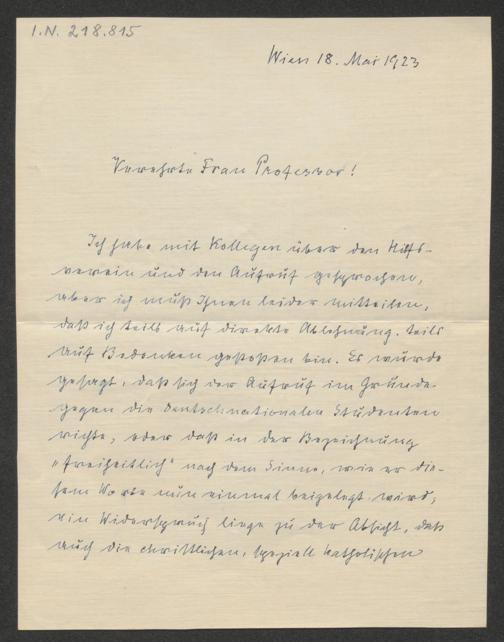 I.N. 218.815
Wien 18. Mai 1923
Verehrte Frau Professor!
Ich habe mit Kollegen über den Hilfs-
verein und den Aufruf gesprochen,
aber ich muß Ihnen leider mitteilen,
daß ich teils auf direkte Ablehnung, teils
auf Bedenken gestoßen bin. Es wurde
gesagt, daß sich der Aufruf im Grunde
gegen die deutschnationalen Studenten
richte, oder daß in der Bezeichnung
„freiheitlich“ nach dem Sinne, wie er die-
sem Worte nun einmal beigelegt wird,
ein Widerspruch liege zu der Absicht, daß
auch die christlichen, speziell katholischen